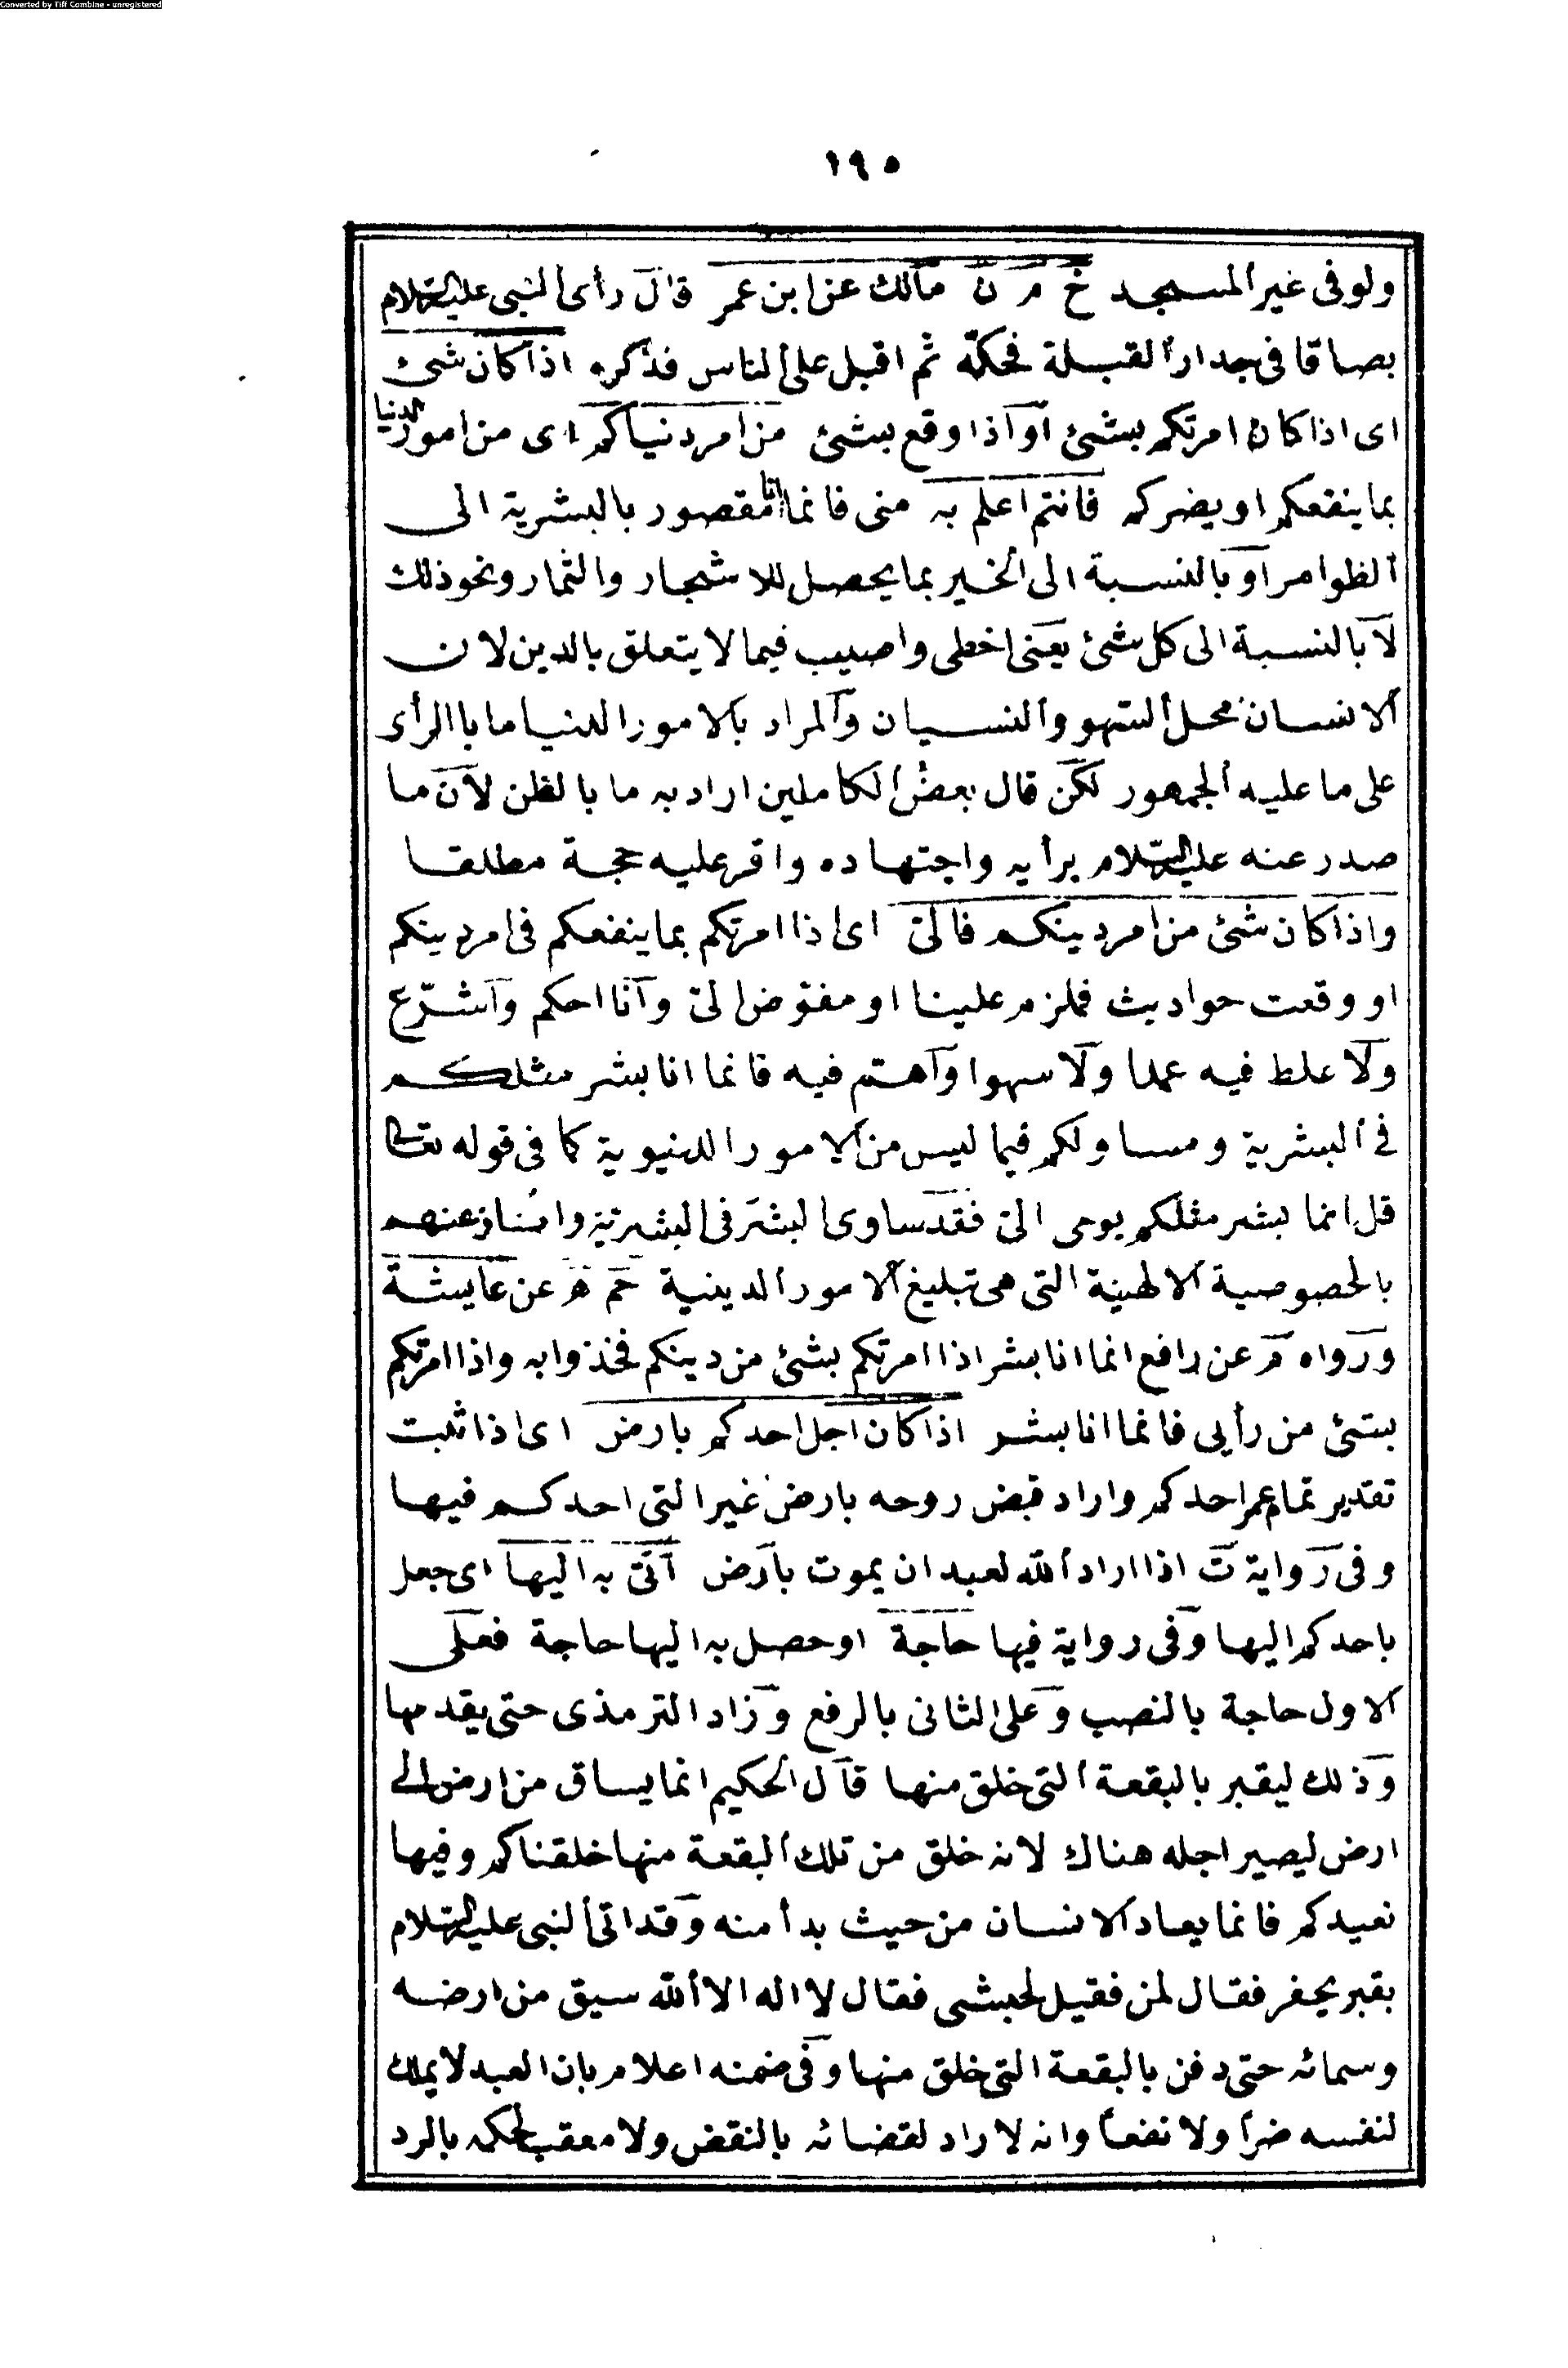 Converted by Tiff Combine - unregistered
١٩٥
ولو فى غير المسجد خ م ن مالك عن ابن عمر قال رأى النبى عليه السلام
بصاقا فى جدار القبلة فحكه ثم اقبل على الناس فذكره اذا كان شئ
اى اذا كان امرتكم بشئ او اذا وقع بشئ من امر دنياكم اى من امور الدنيا
بما ينفعكم او يضركم فانتم اعلم به منى فانما انا مقصور بالبشرية الى
الظواهر او بالنسبة الى الخير بما يحصل للاشجار والثمار ونحو ذلك
لا بالنسبة الى كل شئ يعنى اخطى واصيب فيما لا يتعلق بالدين لان
الانسان محل السهو والنسيان والمراد بالامور الدنيا ما باالرأى
على ما عليه الجمهور لكن قال بعض الكاملين اراد به ما بالظن لان ما
صدر عنه عليه السلام برأيه واجتهاده واقر عليه حجة مطلقا
واذا كان شئ من امر دينكم فالىّ اى اذا امرتكم بما ينفعكم فى امر دينكم
او وقعت حوادث فملزم علينا او مفوض الىّ وانا احكم واشرّع
ولا غلط فيه عمدا ولا سهوا واهتم فيه فانما انا بشر مثلكم
فى البشرية ومساو لكم فيما ليس من الامور الدنيوية كما فى قوله تعالى
قل انما بشر مثلكم يوحى الىّ فقد ساوى البشر فى البشرية وامتاز عنهم
بالخصوصية الالهية التى هى تبليغ الامور الدينية حم ه عن عايشة
ورواه م عن رافع انما انا بشر اذا امرتكم بشئ من دينكم فخذوا به واذا امرتكم
بشئ من رأيى فانما انا بشر اذا كان اجل احدكم بارض اى اذا ثبت
تقدير تمام عمر احدكم واراد قبض روحه بارض غير التى احدكم فيها
وفى رواية ت اذا اراد الله لعبد ان يموت بارض اتى به اليها اى جعل
باحدكم اليها وفى رواية فيها حاجة او حصل به اليها حاجة فعلى
الاول حاجة بالنصب وعلى الثانى بالرفع وزاد الترمذى حتى يقدمها
وذلك ليقبر بالبقعة التى خلق منها قال الحكيم انما يساق من ارض الى
ارض ليصير اجله هناك لانه خلق من تلك البقعة منها خلقناكم وفيها
نعيدكم فانما يعاد الانسان من حيث بدأ منه وقد اتى النبى عليه السلام
بقبر يحفر فقال لمن فقيل لحبشى فقال لا اله الا الله سيق من ارضه
وسمائه حتى دفن بالبقعة التى خلق منها وفى ضمنه اعلام بان العبد لا يملك
لنفسه ضرا ولا نفعا وانه لا راد لقضائه بالنقض ولا معقب لحكمه بالرد